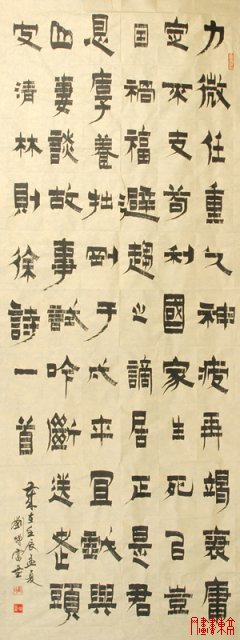 力微任重久神疲再竭衰庸
定不支苟利國家生死以豈
因禍福避趨之謫居正是君
恩厚養拙剛于戍卒宜戲與
山妻談故事試吟斷送老頭
皮清林則徐詩一首
歲在壬辰孟夏
劉